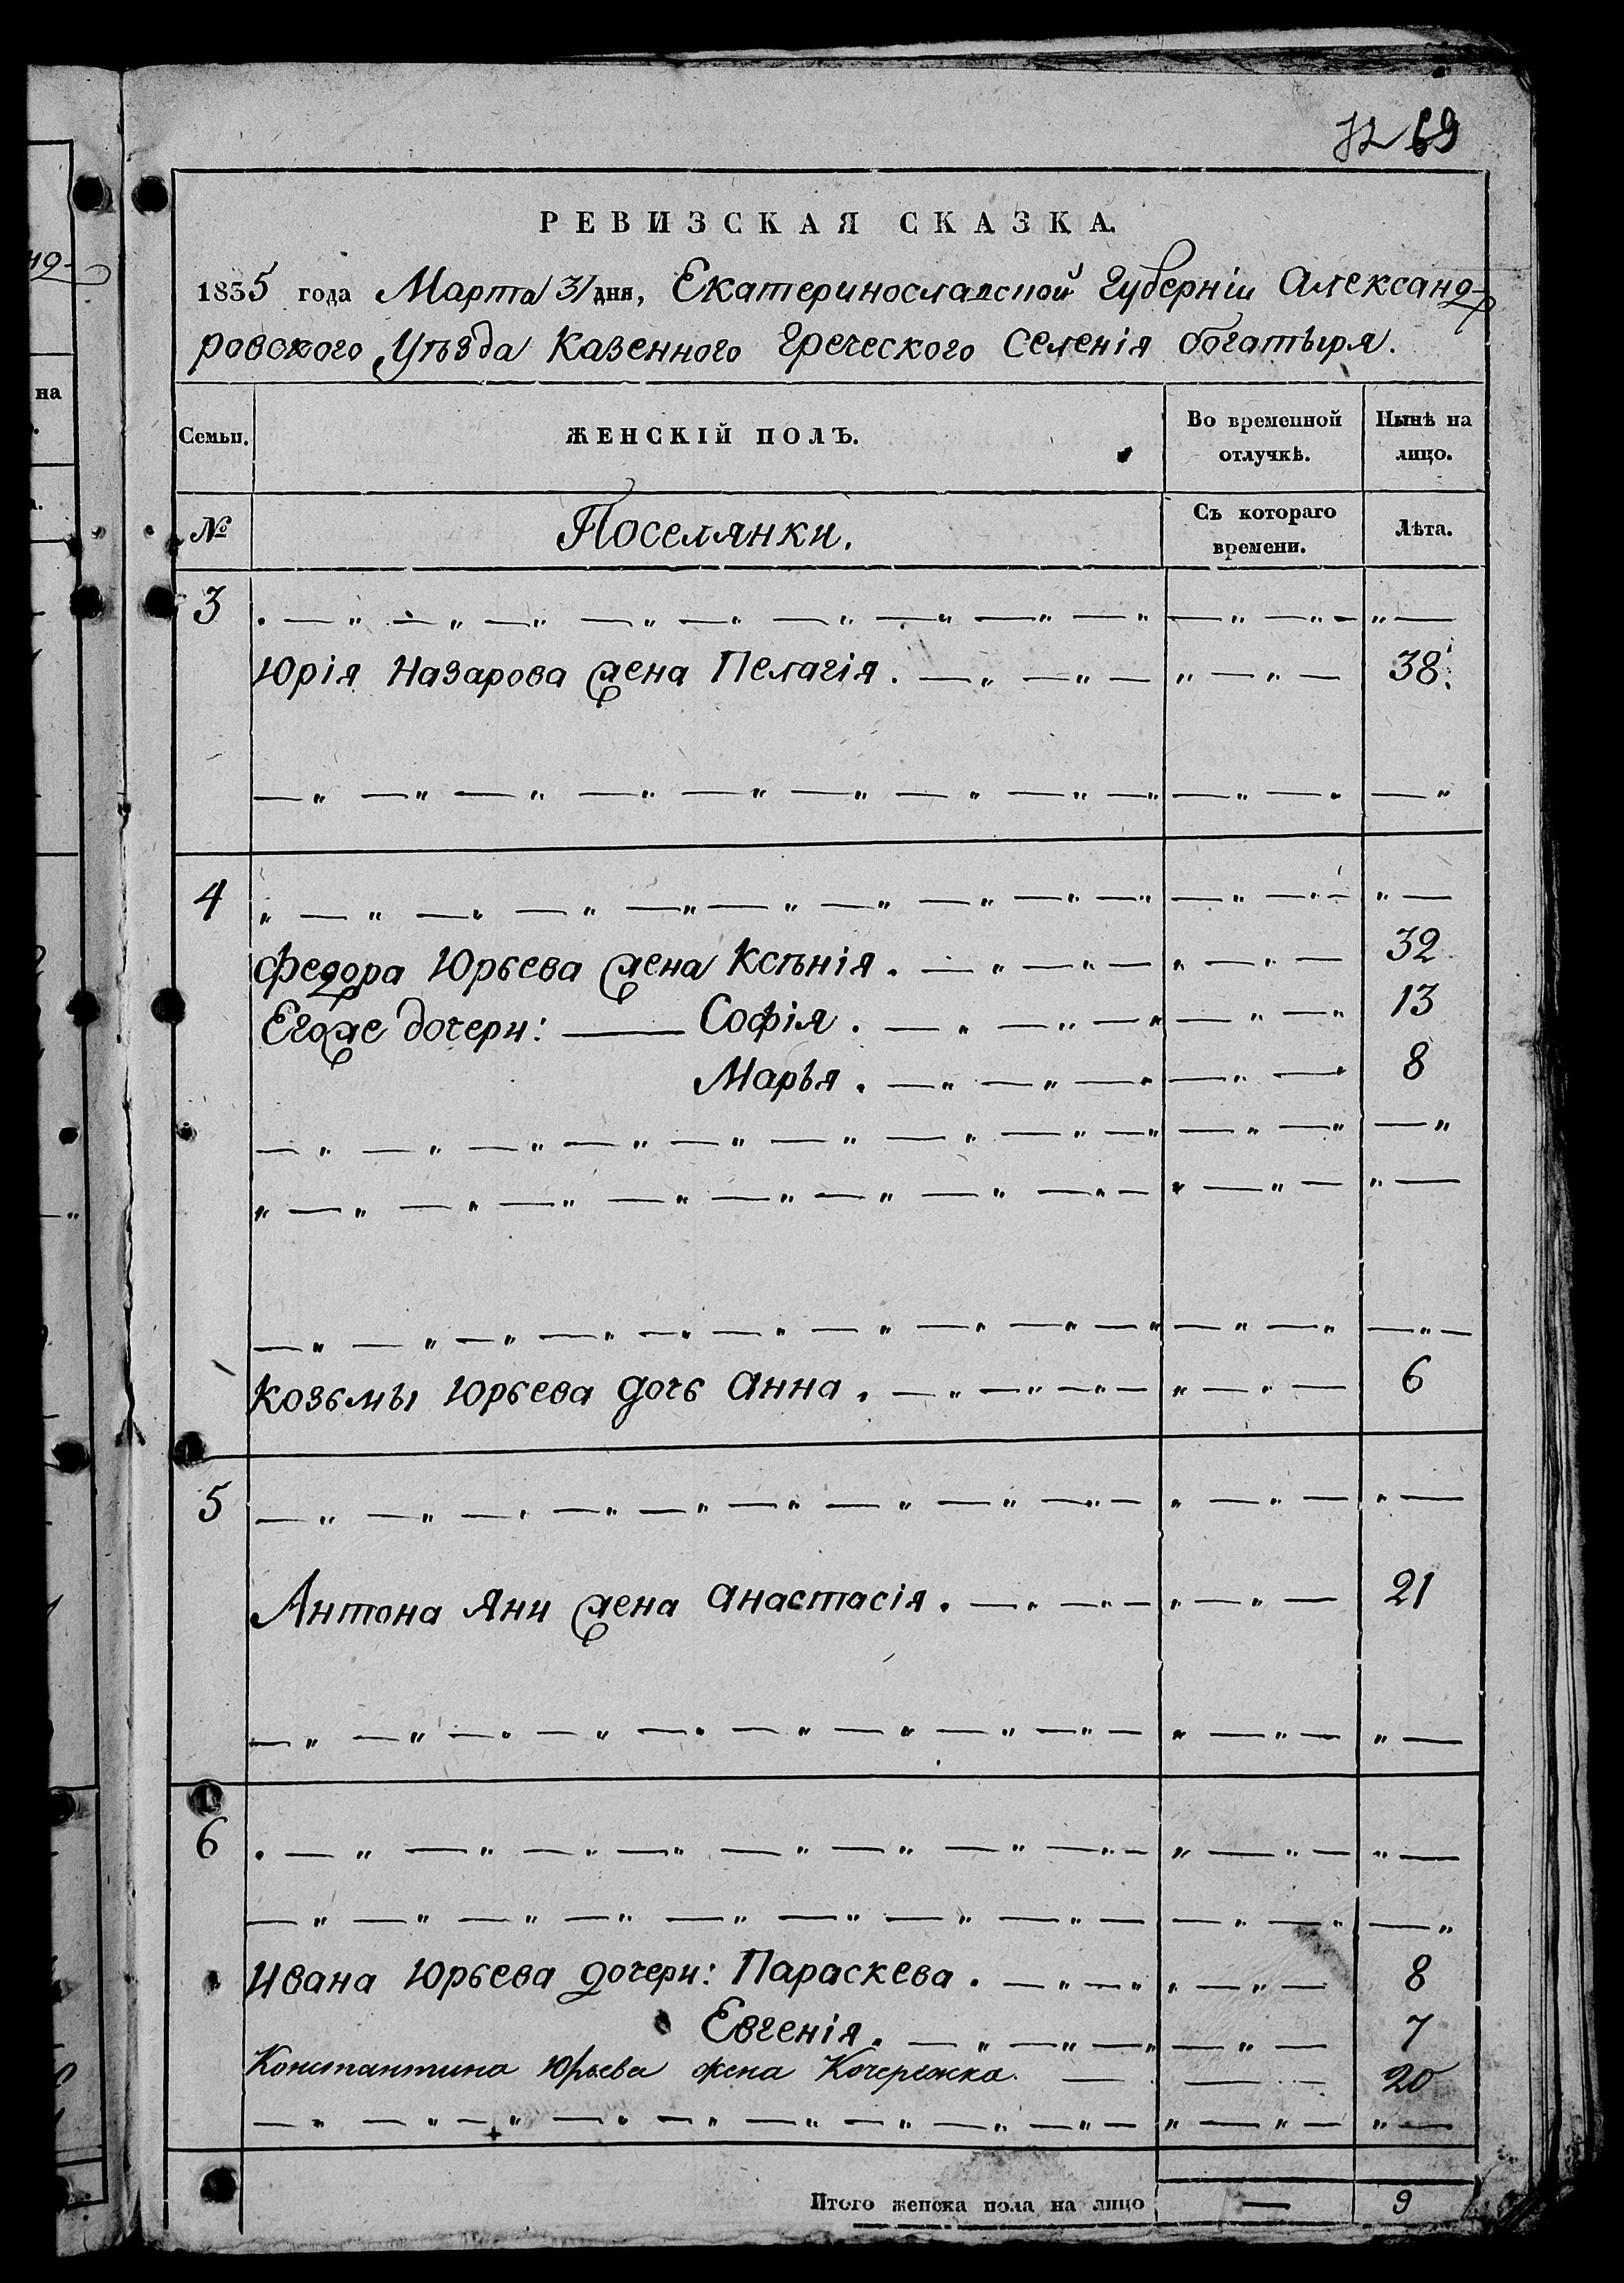 72 69
РЕВИЗСКАЯ СКАЗКА.
1835 года Марта 31 дня, Екатеринославской Губерніи Александ-
ровского Уѣзда Казенного Греческого Селенія Богатыря.
Семьи. ЖЕНСКІЙ ПОЛЪ. Во временной отлучкѣ. Нынѣ на лицо.
№ Поселянки. Съ котораго времени. Лѣта.
3
Юрія Назарова жена Пелагія. 38.
4
Федора Юрьева жена Ксѣнія. 32
Егоже дочери: Софія. 13
Марья. 8
Козьмы Юрьева дочь Анна. 6
5
Антона Яни жена Анастасія. 21
6
Ивана Юрьева дочери: Параскева. 8
Евгенія. 7
Константина Юрьева жена Кочережка. 20
Итого женска пола на лицо — 9